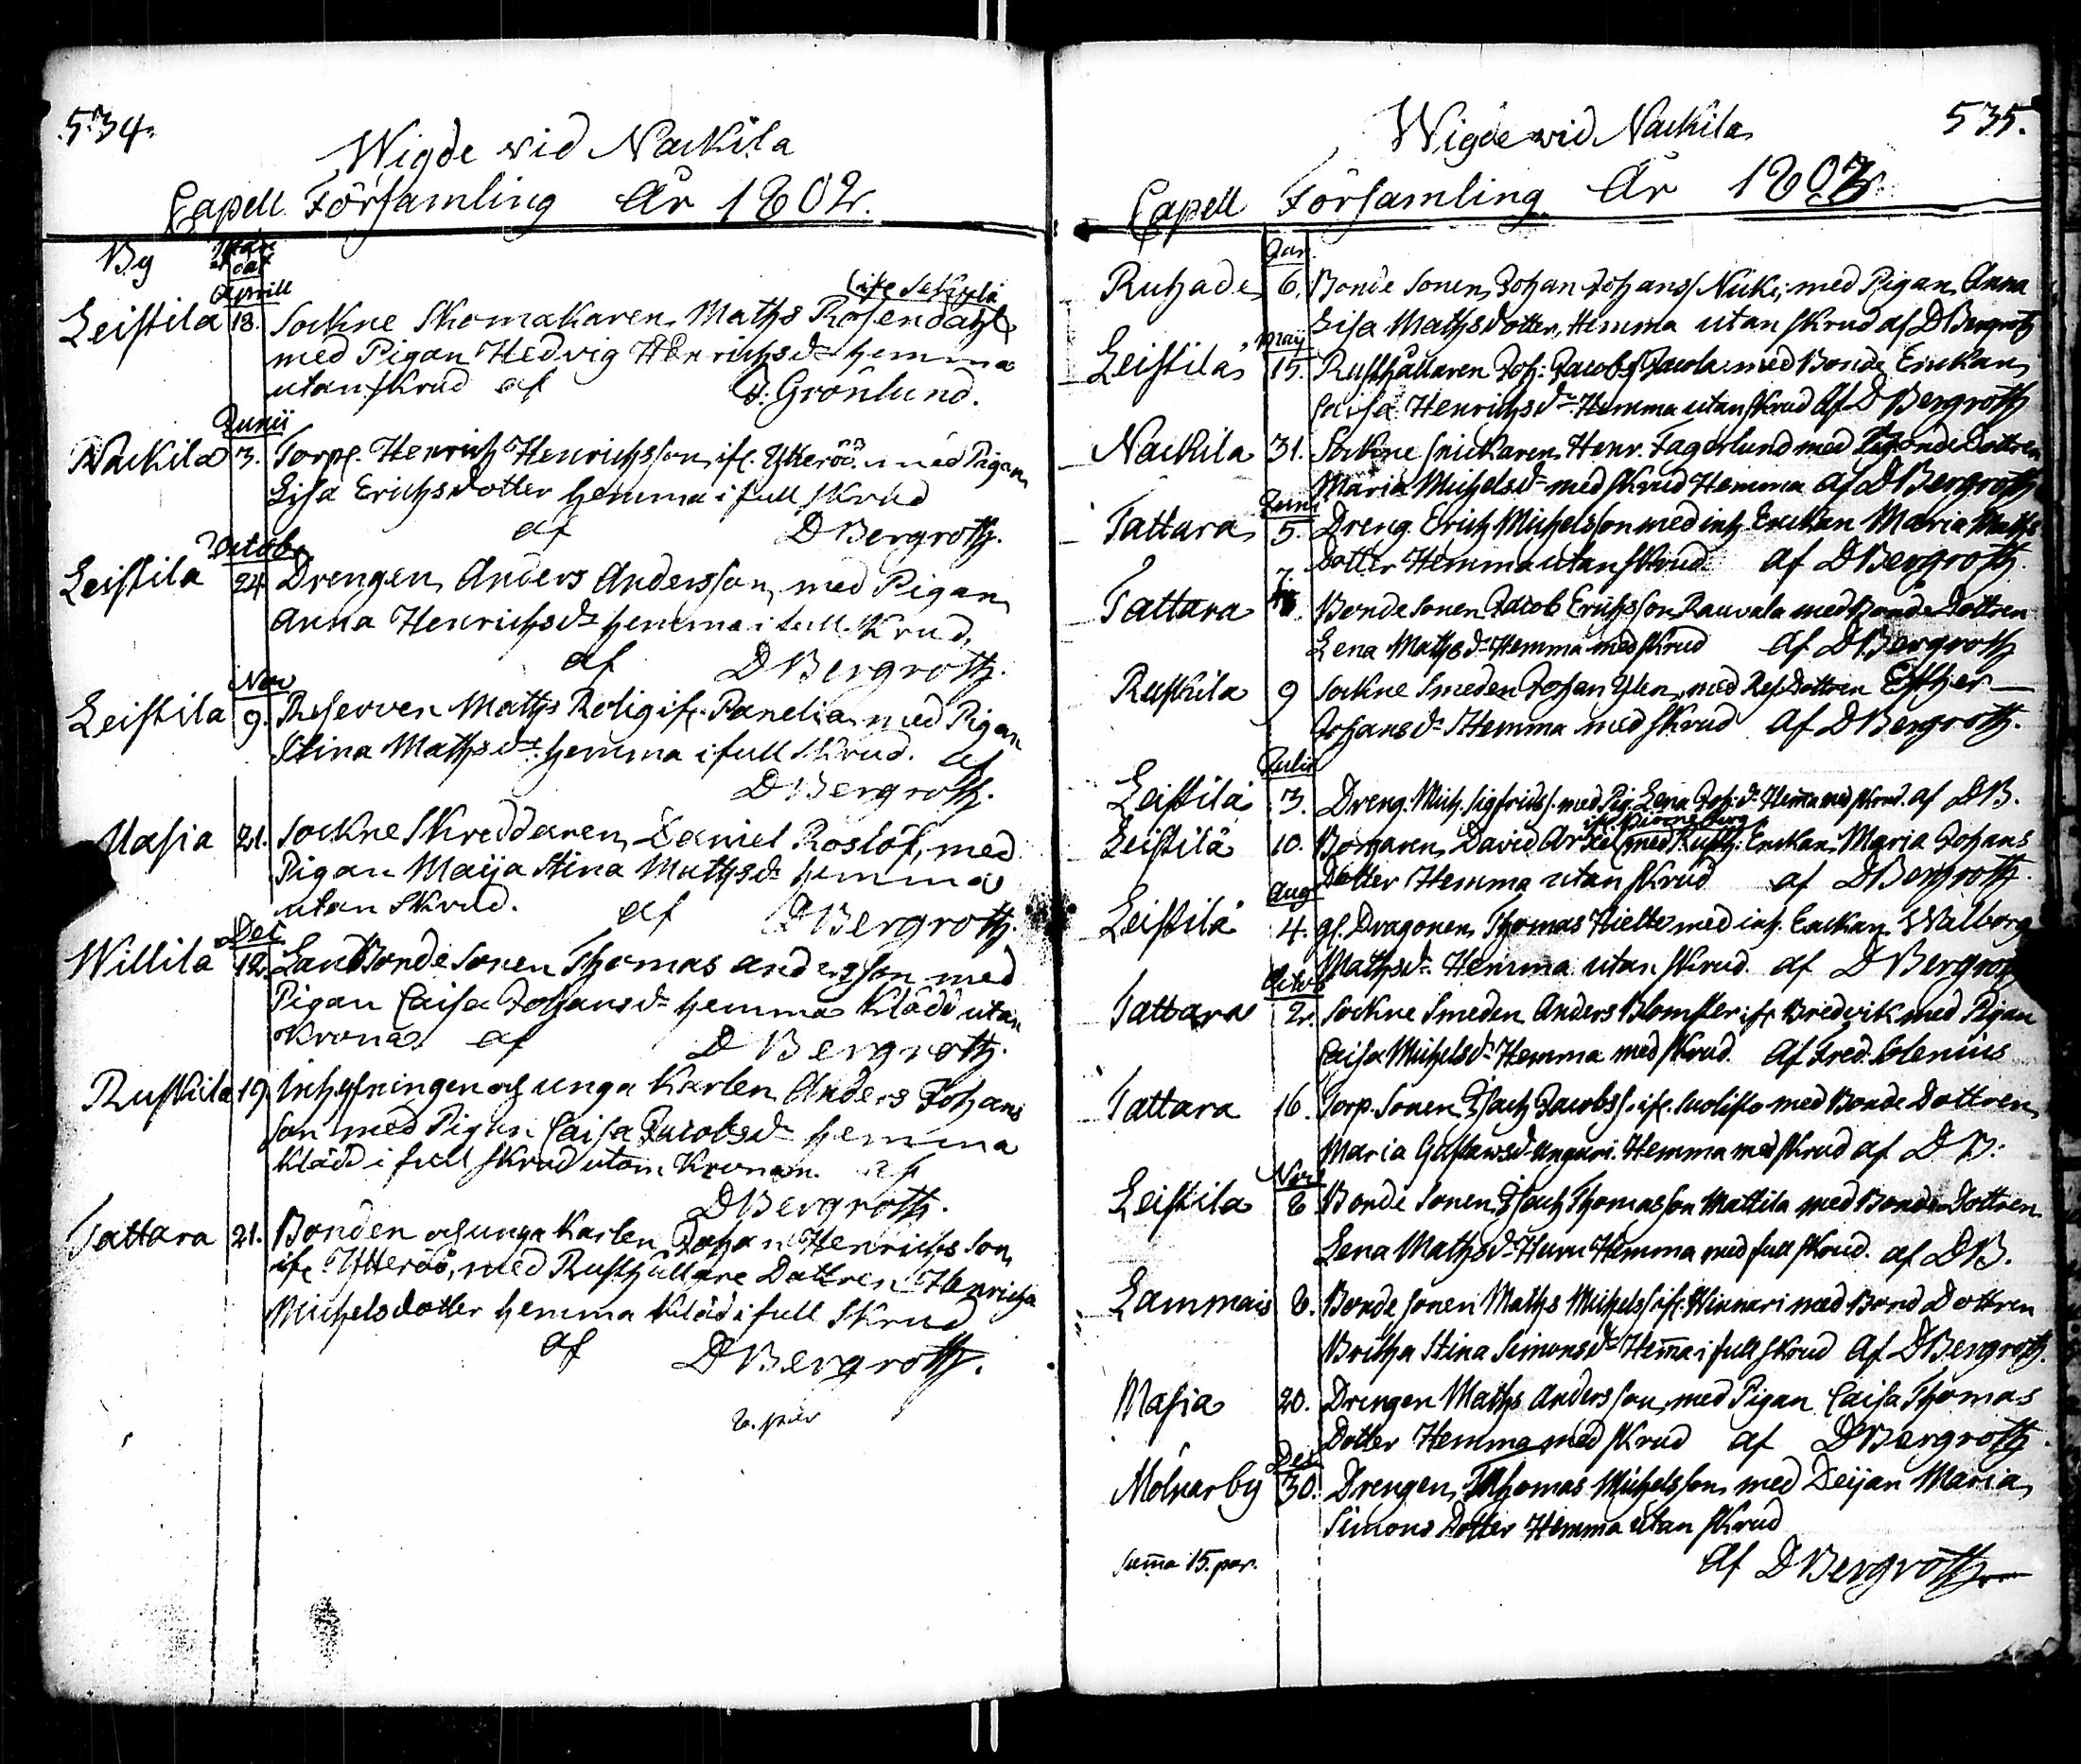 534.
Wigde wid Nackila
Capell Församling År 1802.
By
Aprill
Leistila 18. Sockne Skomakaren Maths Rosendahl
med Pigan Hedvig Henrichsdr hemma
utan skrud af Grönlund.
Junii
Nackila 3. Torp. Henrich Henrichsson ifr. Ytteröö med Pigan
Lisa Erichsdotter hemma i full skrud
af DBergroth.
Octobr
Leistila 24 Drengen Anders Andersson med Pigan
Anna Henrichsdr hemma i full skrud,
af DBergroth.
Nov
Leistila 9. Reserven Maths Rolig ifr. Panelia med Pigan
Stina Mathsdr. hemma i full skrud. af
DBergroth.
Masia 21. Sockne Skreddaren Daniel Roslöf, med
Pigan Maija Stina Mathsdr hemma
utan skrud. af DBergroth.
Dec
Willila 12. Landbonde Sonen Thomas andersson med
Pigan Caisa Johansdr hemma klädd utan
Krona af DBergroth.
Ruskila 19. Inhysningen och unga Karlen Anders Johans
son med Pigan Caisa Jacobsdr hemma
klädd i full skrud utom Kronan. af
DBergroth.
Tattara 21. Bonden och unga Karlen Johan Henrichs son
ifr Ytteröö, med Rusthållare Dottren Henricha
Michelsdotter hemma kläd i full skrud
af DBergroth.
8. par
535.
Wigde wid Nackila
Capell Församling År 1803.
Jan
Ruhade 6. Bonde Sonen Johan Johanss Nicki, med Pigan Anna
Lisa Mathsdotter, Hemma utan skrud af DBergroth
Maij
Leistila 15. Rusthållaren Joh: Jacobs Jacola med Bonde Enckan
Caisa Henrichsdr Hemma utan skrud af DBergroth
Nackila 31. Sockne snickaren Henr. Fagerlund med Bonde Dottren
Maria Michelsdr med skrud Hemma af DBergroth
Juni
Tattara 5. Dreng. Erich Michelsson med inh Enckan Maria Maths
Dotter Hemma utan skrud. af DBergroth.
Tattara 7. Bonde Sonen Jacob Erichsson Rauvala med Bonde Dottren
Lena Mathsdr Hemma med skrud af DBergroth
Ruskila 9 Sockne Smeden Johan Ylen, med Res. Dottren Esther
Johansdr Hemma med skrud af DBergroth.
Julii
Leistila 3. Dreng. Mich. Sigfrids s. med Pig. Lena Joh. dr Hemma med skrud. af DB.
ifr Biörneborg
Leistila 10. Borgaren David Arkel med Rusth: Enckan Maria Johans
Dotter Hemma utan skrud af DBergroth.
Aug
Leistila 4. gl. Dragonen Thomas Hielte med inh. Enckan Walborg
Mathsdr. Hemma utan skrud. af DBergroth
Octob
Tattara 2. Sockne Smeden Anders Blomster ifr Bredvik med Pigan
Caisa Michelsdr Hemma med skrud. af Fred. Polenius
Tattara 16. Torp. Sonen Isach Jacobss. ifr. Suolisto med Bonde Dottren
Maria Gustawsdr Unguri. Hemma med skrud af DB.
Nov
Leistila 8 Bonde Sonen Isach Thomasson Mattila med Bonde Dottren
Lena Mathsdr Huru Hemma med full skrud. af DB.
Lammais 8. Bonde Sonen Maths Michelss ifr. Hinnari med Bond Dottren
Britha Stina Simonsdr Hemma i full skrud af DBergroth.
Masia 20. Drengen Maths Andersson, med Pigan Caisa Thomas
Dotter Hemma med skrud af DBergroth.
Dec
Mölnarby 30. Drengen Thomas Michelsson med Deijan Maria
Simons Dotter Hemma utan skrud
Suma 15. par. af DBergroth